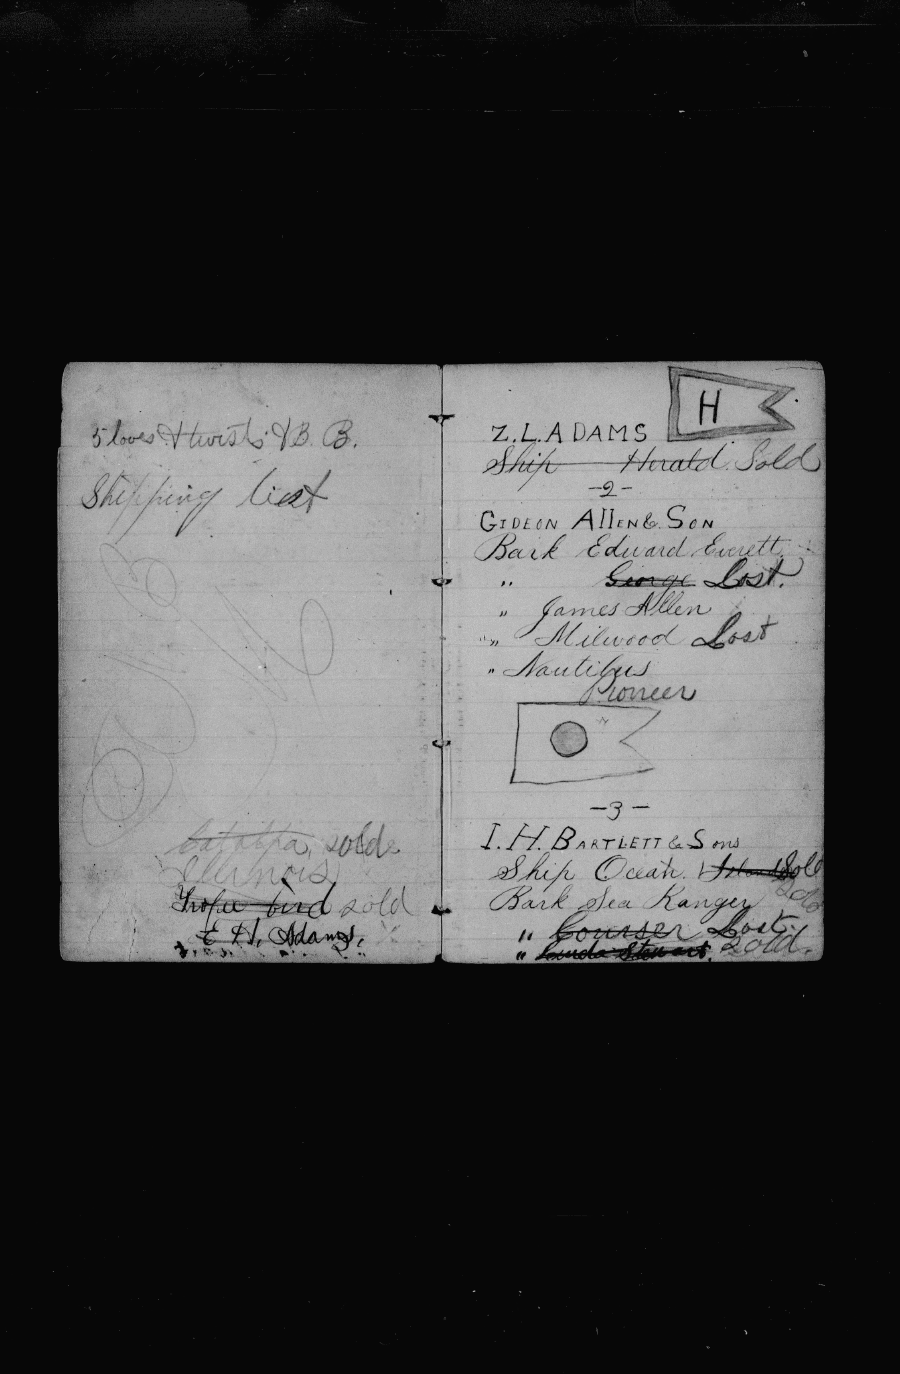 5 loves & twists & B. B.
Shipping liest
Catalpa, sold
Illinois
Tropic bird sold
E H. Adams.
H
Z.L.ADAMS
Ship Herald Sold
-2-
GIDEON AllEN & SON
Bark Edward Everett
" George Lost.
" James Allen
" Milwood Lost
" Nautilus
Pioneer
-3-
I. H. BARTLETT & Sons
Ship Ocean. Sold
Bark Sea Ranger
" Courser Lost.
" Linda Stewart. Sold.